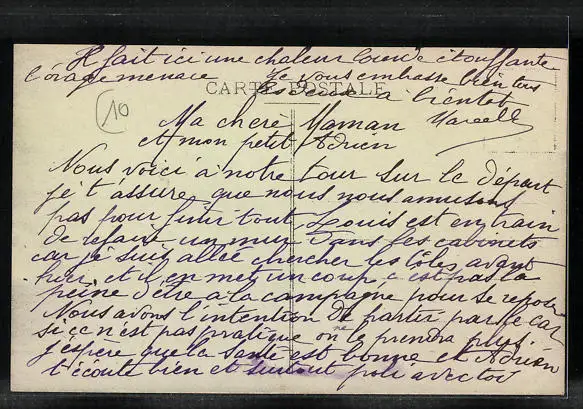 Il fait ici une chaleur lourde étouffante
l'orage menace Je vous embrasse bien tous
les deux à bientôt
CARTE POSTALE
Marcelle
10
Ma chère Maman
A mon petit Adrien
Nous voici à notre tour sur le départ
je t'assure que nous nous amusons
pas pour finir tout Louis est en train
de refaire un mur dans les cabinets
car je suis allée chercher les avant
hier, et il en met un coup, c'est pas la
peine d'être à la campagne pour se reposer
Nous avons l'intention de partir par le car
si ça n'est pas pratique on ne le prendra plus.
j'espère que la santé est bonne et Adrien
t'écoute bien et surtout poli avec toi